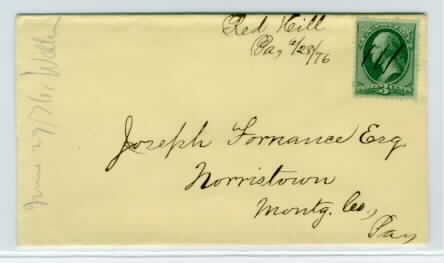 Red Hill
Pa, 6/28/76
Joseph Fornance Esq
Norristown
Montg. Co.,
Pa,
June 27/76,
3